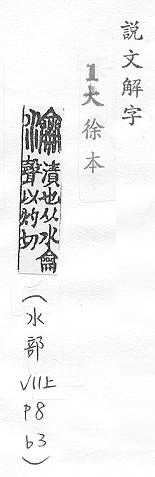 説文解字
1大徐本
瀹漬也从水龠
聲以灼切
(水部VII上p8b3)